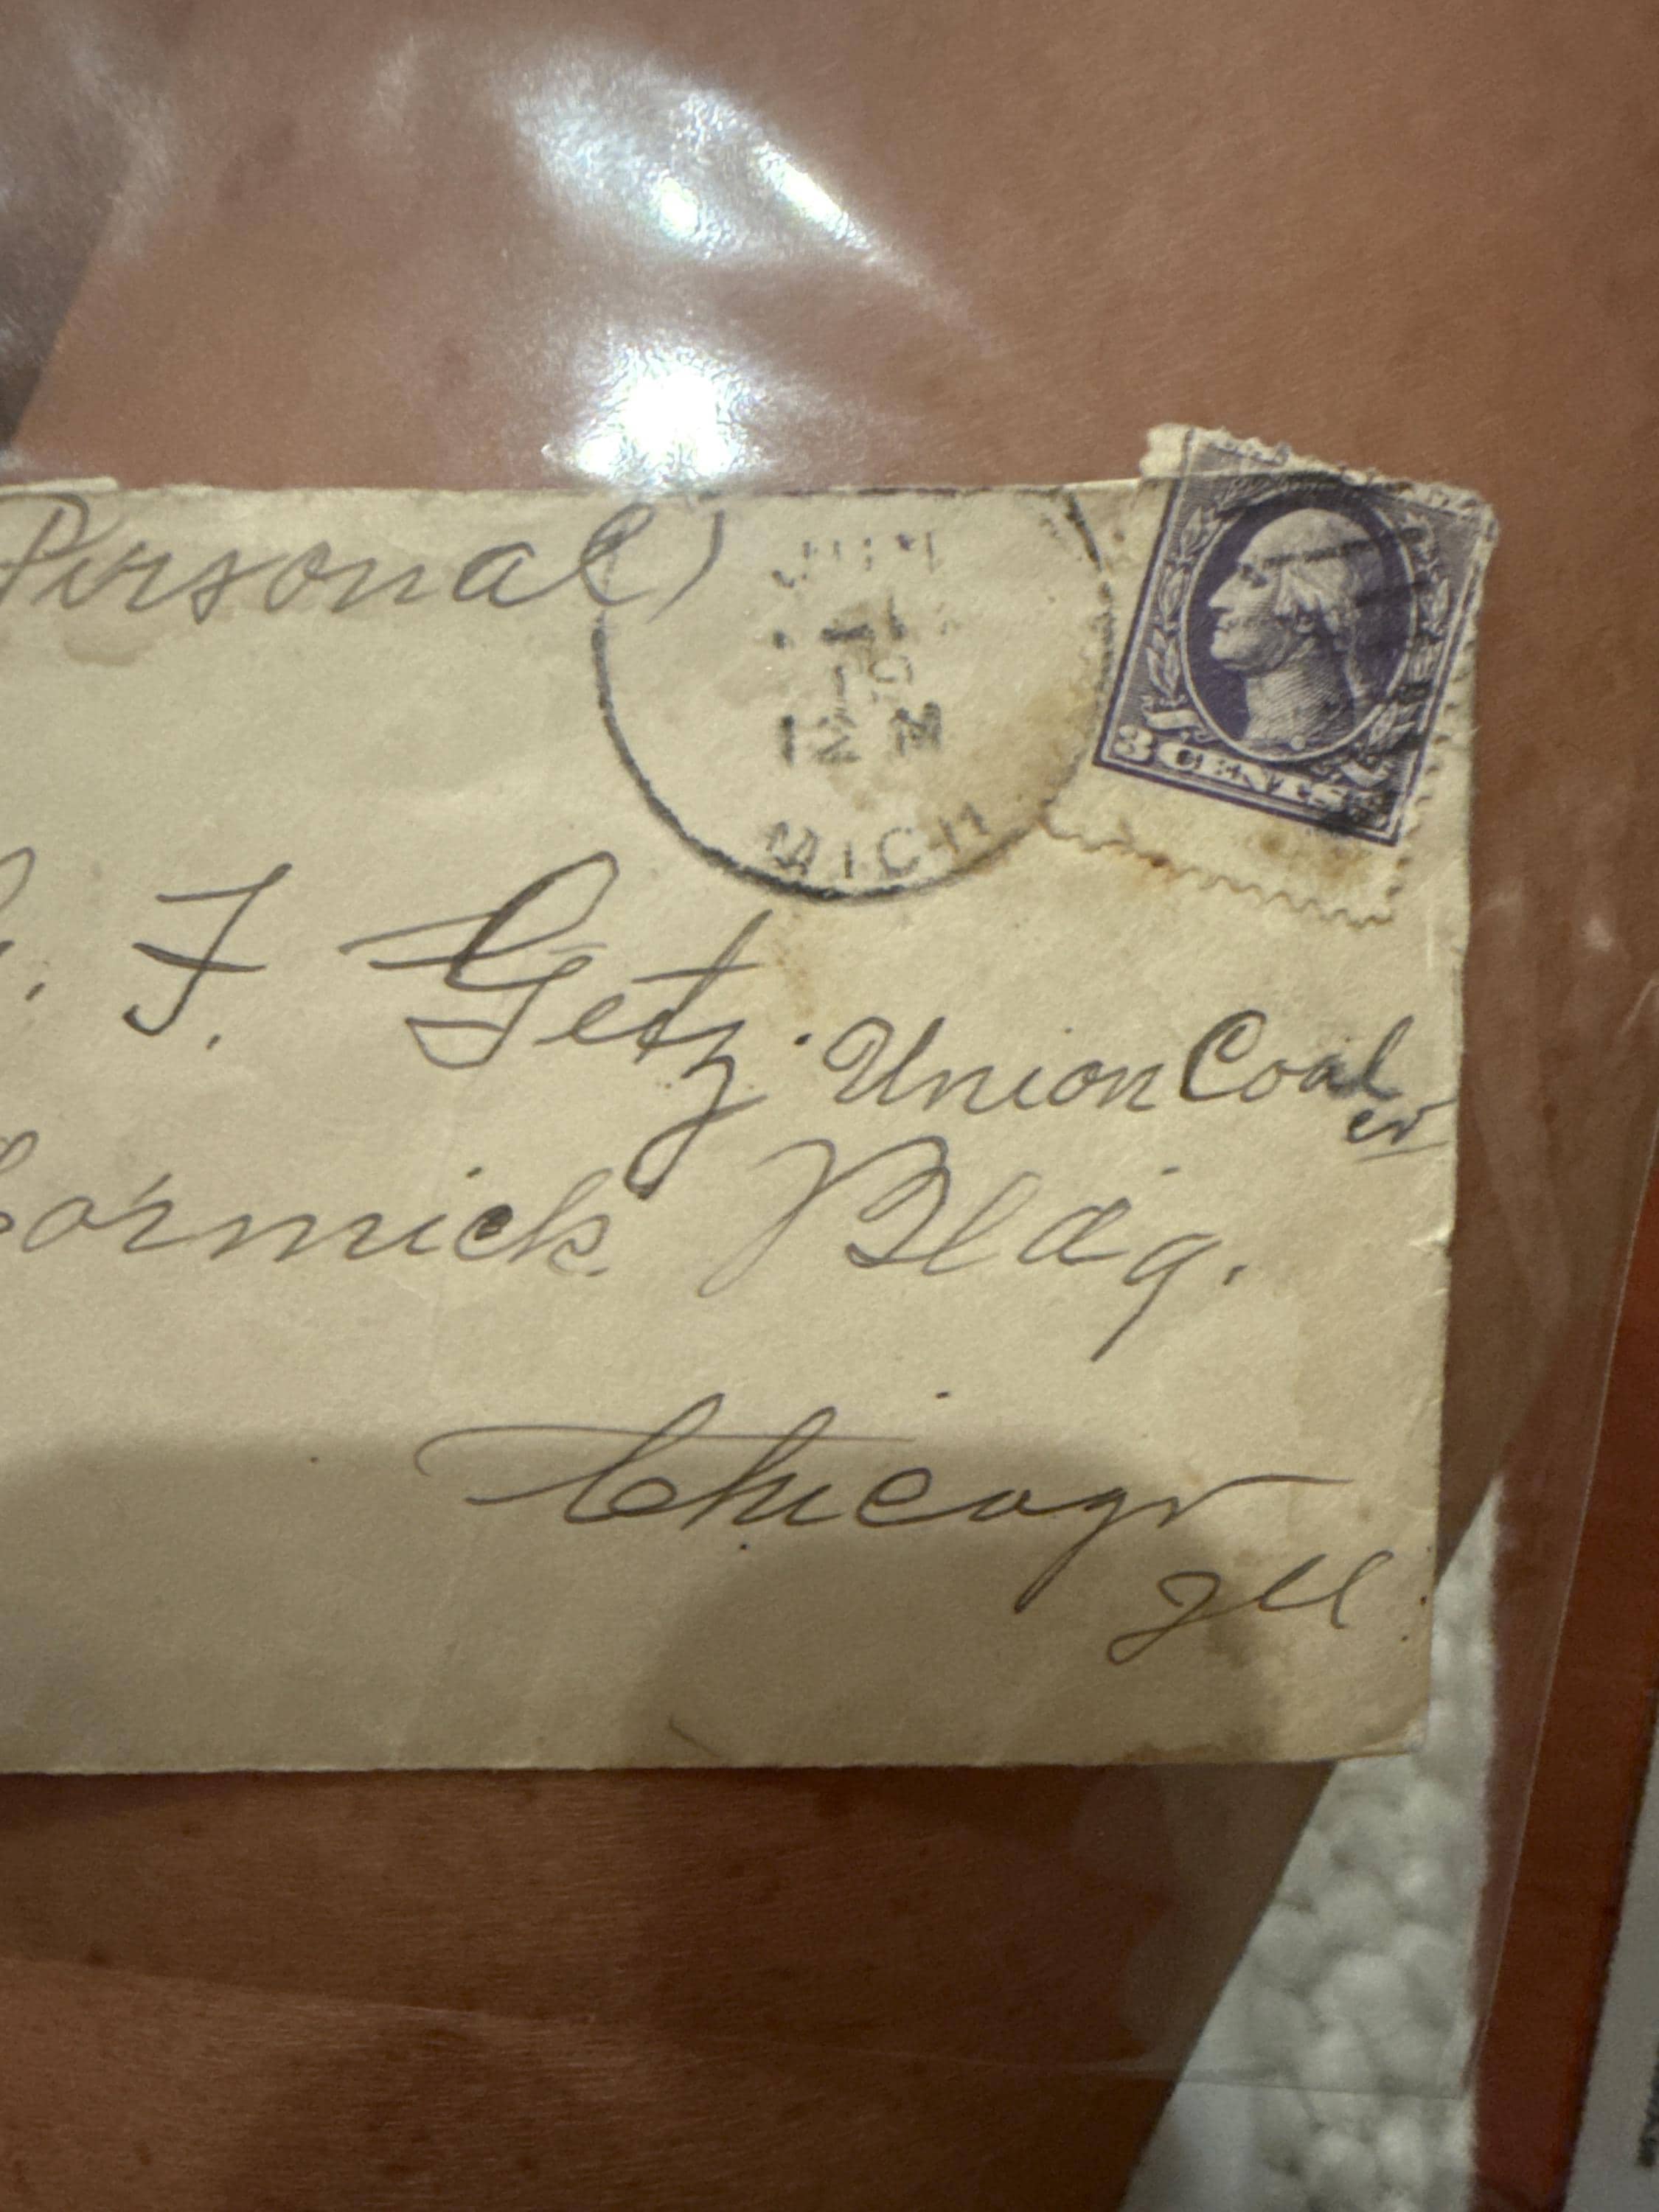 Personal)
MICH
3 CENTS 3
. F. Getz. Union Coal
co
Cormick Bldg.
Chicago
Ill